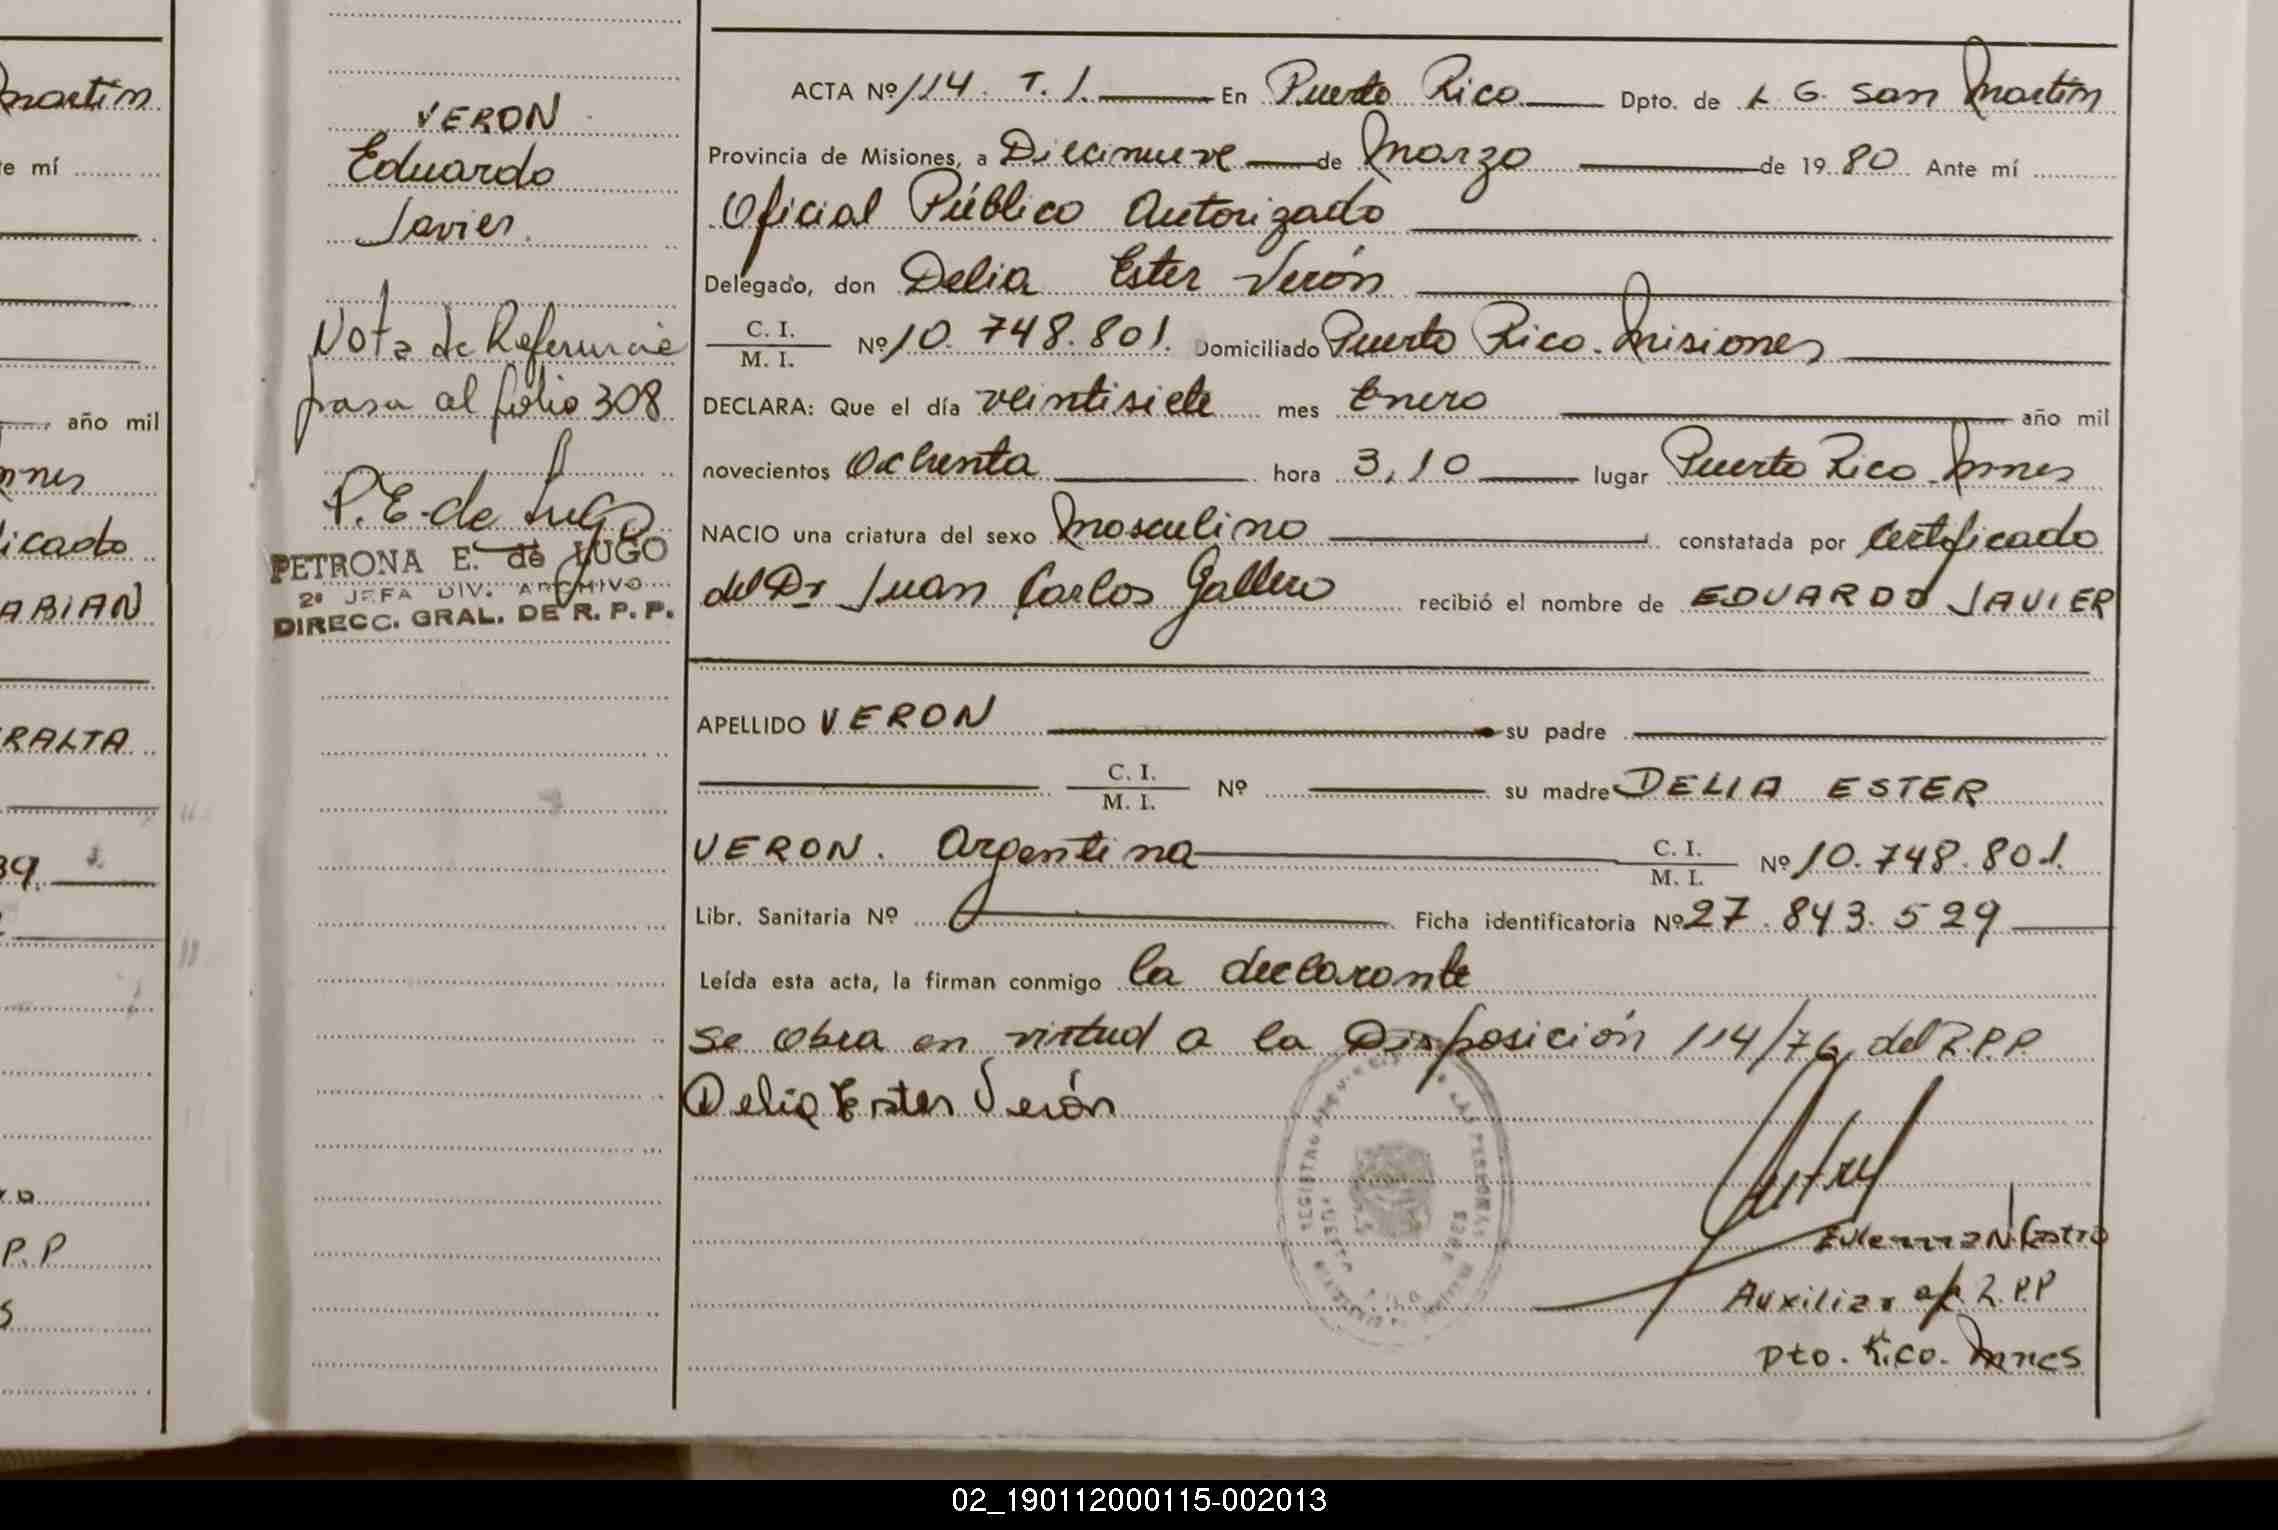 martin
te mí
año mil
nnes
icado
ABIAN
RALTA
39.
P.P
S
VERON
Eduardo
Javier.
Nota de Referencia
pasa al folio 308
P.E. de Lugo
PETRONA E. de LUGO
2º JEFA DIV. ARCHIVO
DIRECC. GRAL. DE R. P. P.
ACTA Nº 114. T. 1. En Puerto Rico Dpto. de L G. San Martín
Provincia de Misiones, a Diecinueve de Marzo de 19 80 Ante mí
Oficial Público Autorizado
Delegado, don Delia Ester Verón
C. I.
M. I.
Nº 10.748.801. Domiciliado Puerto Rico. Misiones
DECLARA: Que el día veintisiete mes Enero año mil
novecientos Ochenta hora 3,10 lugar Puerto Rico. Mnes
NACIO una criatura del sexo Masculino constatada por Certificado
del Dr Juan Carlos Gallero recibió el nombre de EDUARDO JAVIER
APELLIDO VERON su padre
C. I.
M. I.
Nº su madre DELIA ESTER
VERON. Argentina C. I.
M. I.
Nº 10.748.801.
Libr. Sanitaria Nº Ficha identificatoria Nº 27.843.529
Leída esta acta, la firman conmigo la declarante
Se Obra en virtud a la Disposición 114/76 del R.P.P.
Delia Ester Verón
N. Castro
Auxiliar R.P.P
Pto. Rico. Mnes
02_190112000115-002013